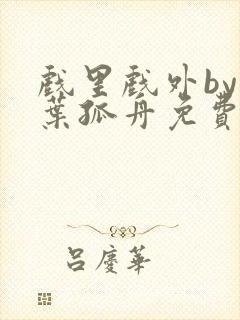 戲里戲外by
葉孤舟免費
呂慶華